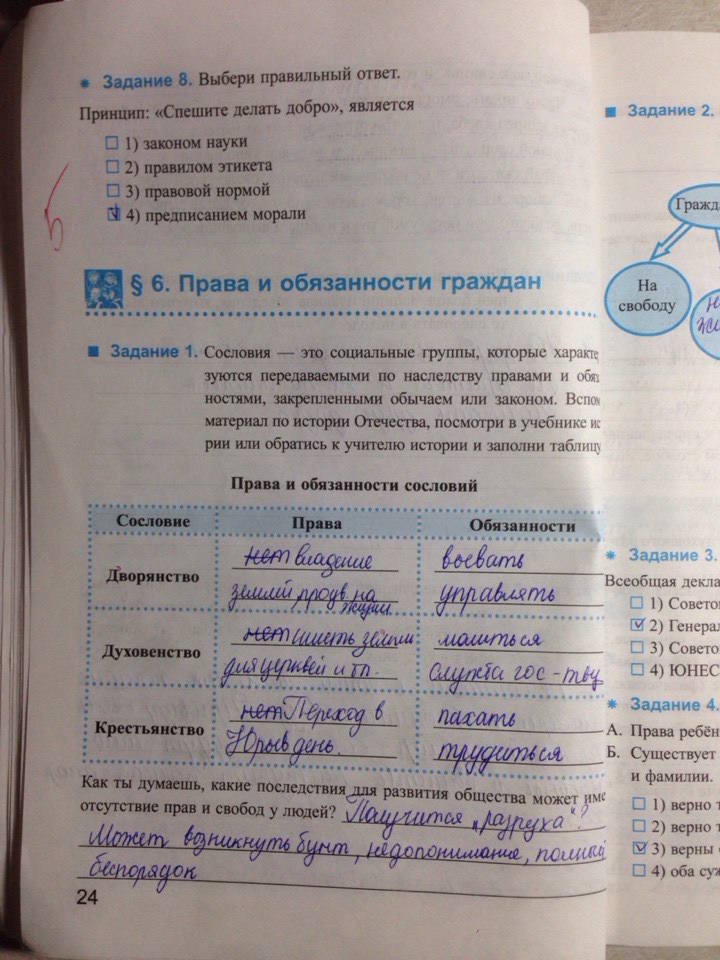 Задание 8. Выбери правильный ответ.
Принцип: «Спешите делать добро», является
1) законом науки
2) правилом этикета
3) правовой нормой
4) предписанием морали
§ 6. Права и обязанности граждан
Задание 1. Сословия — это социальные группы, которые характе
зуются передаваемыми по наследству правами и обяз
ностями, закрепленными обычаем или законом. Вспом
материал по истории Отечества, посмотри в учебнике ис
рии или обратись к учителю истории и заполни таблицу
Права и обязанности сословий
Сословие Права Обязанности
Дворянство
нет владение
землей на
жизни
воевать
управлять
Духовенство
нет иметь земли
для церквей и тп.
молиться
служба гос-тву
Крестьянство
нет Переход в
Юрьев день.
пахать
трудиться
Как ты думаешь, какие последствия для развития общества может име
отсутствие прав и свобод у людей? Получится „разруха“?
Может возникнуть бунт, недопонимание, полный
беспорядок
24
Задание 2.
Гражд
На
свободу
Задание 3.
Всеобщая декла
1) Совето
2) Генера
3) Совето
4) ЮНЕС
Задание 4.
А. Права ребён
Б. Существует
и фамилии.
1) верно т
2) верно т
3) верны
4) оба суж